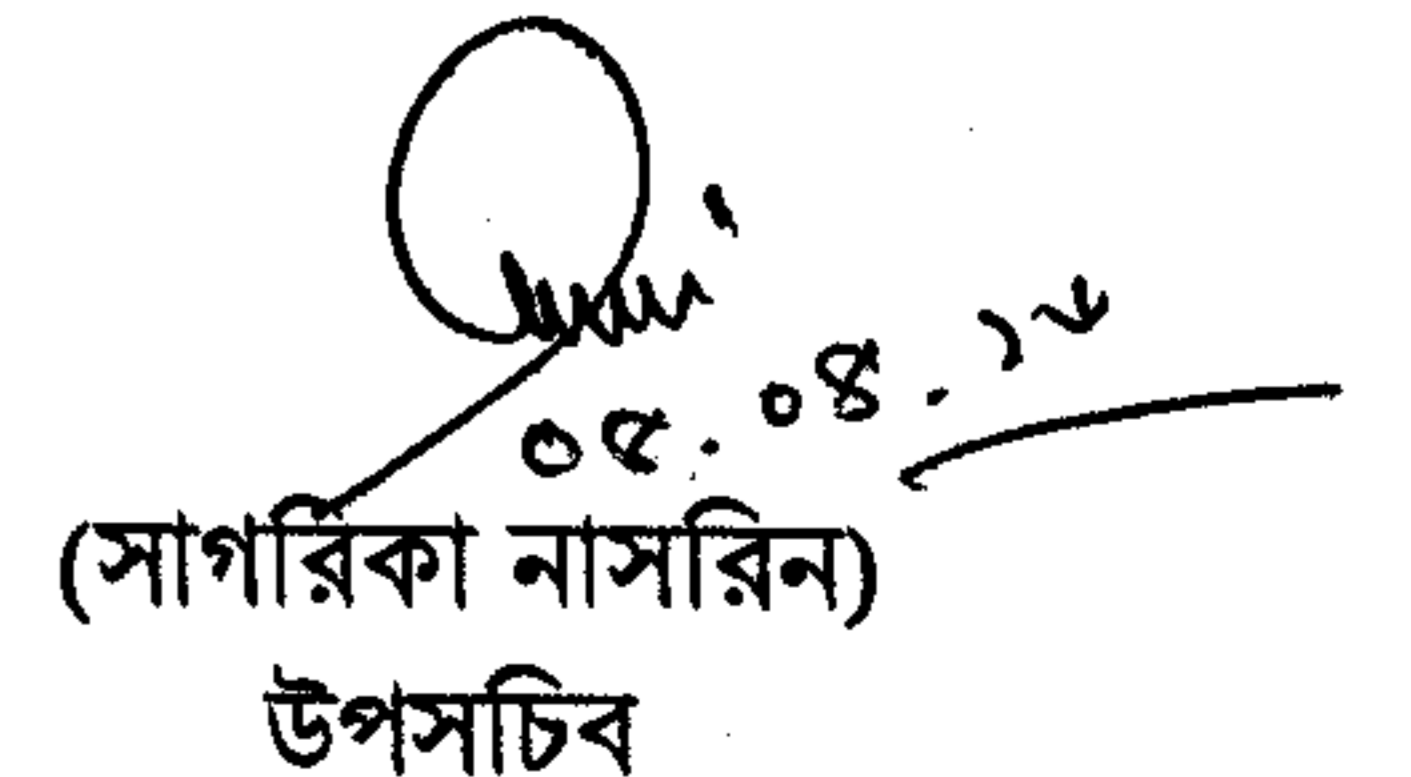 ০৫.০৪.১৮
(সাগরিকা নাসরিন)
উপসচিব